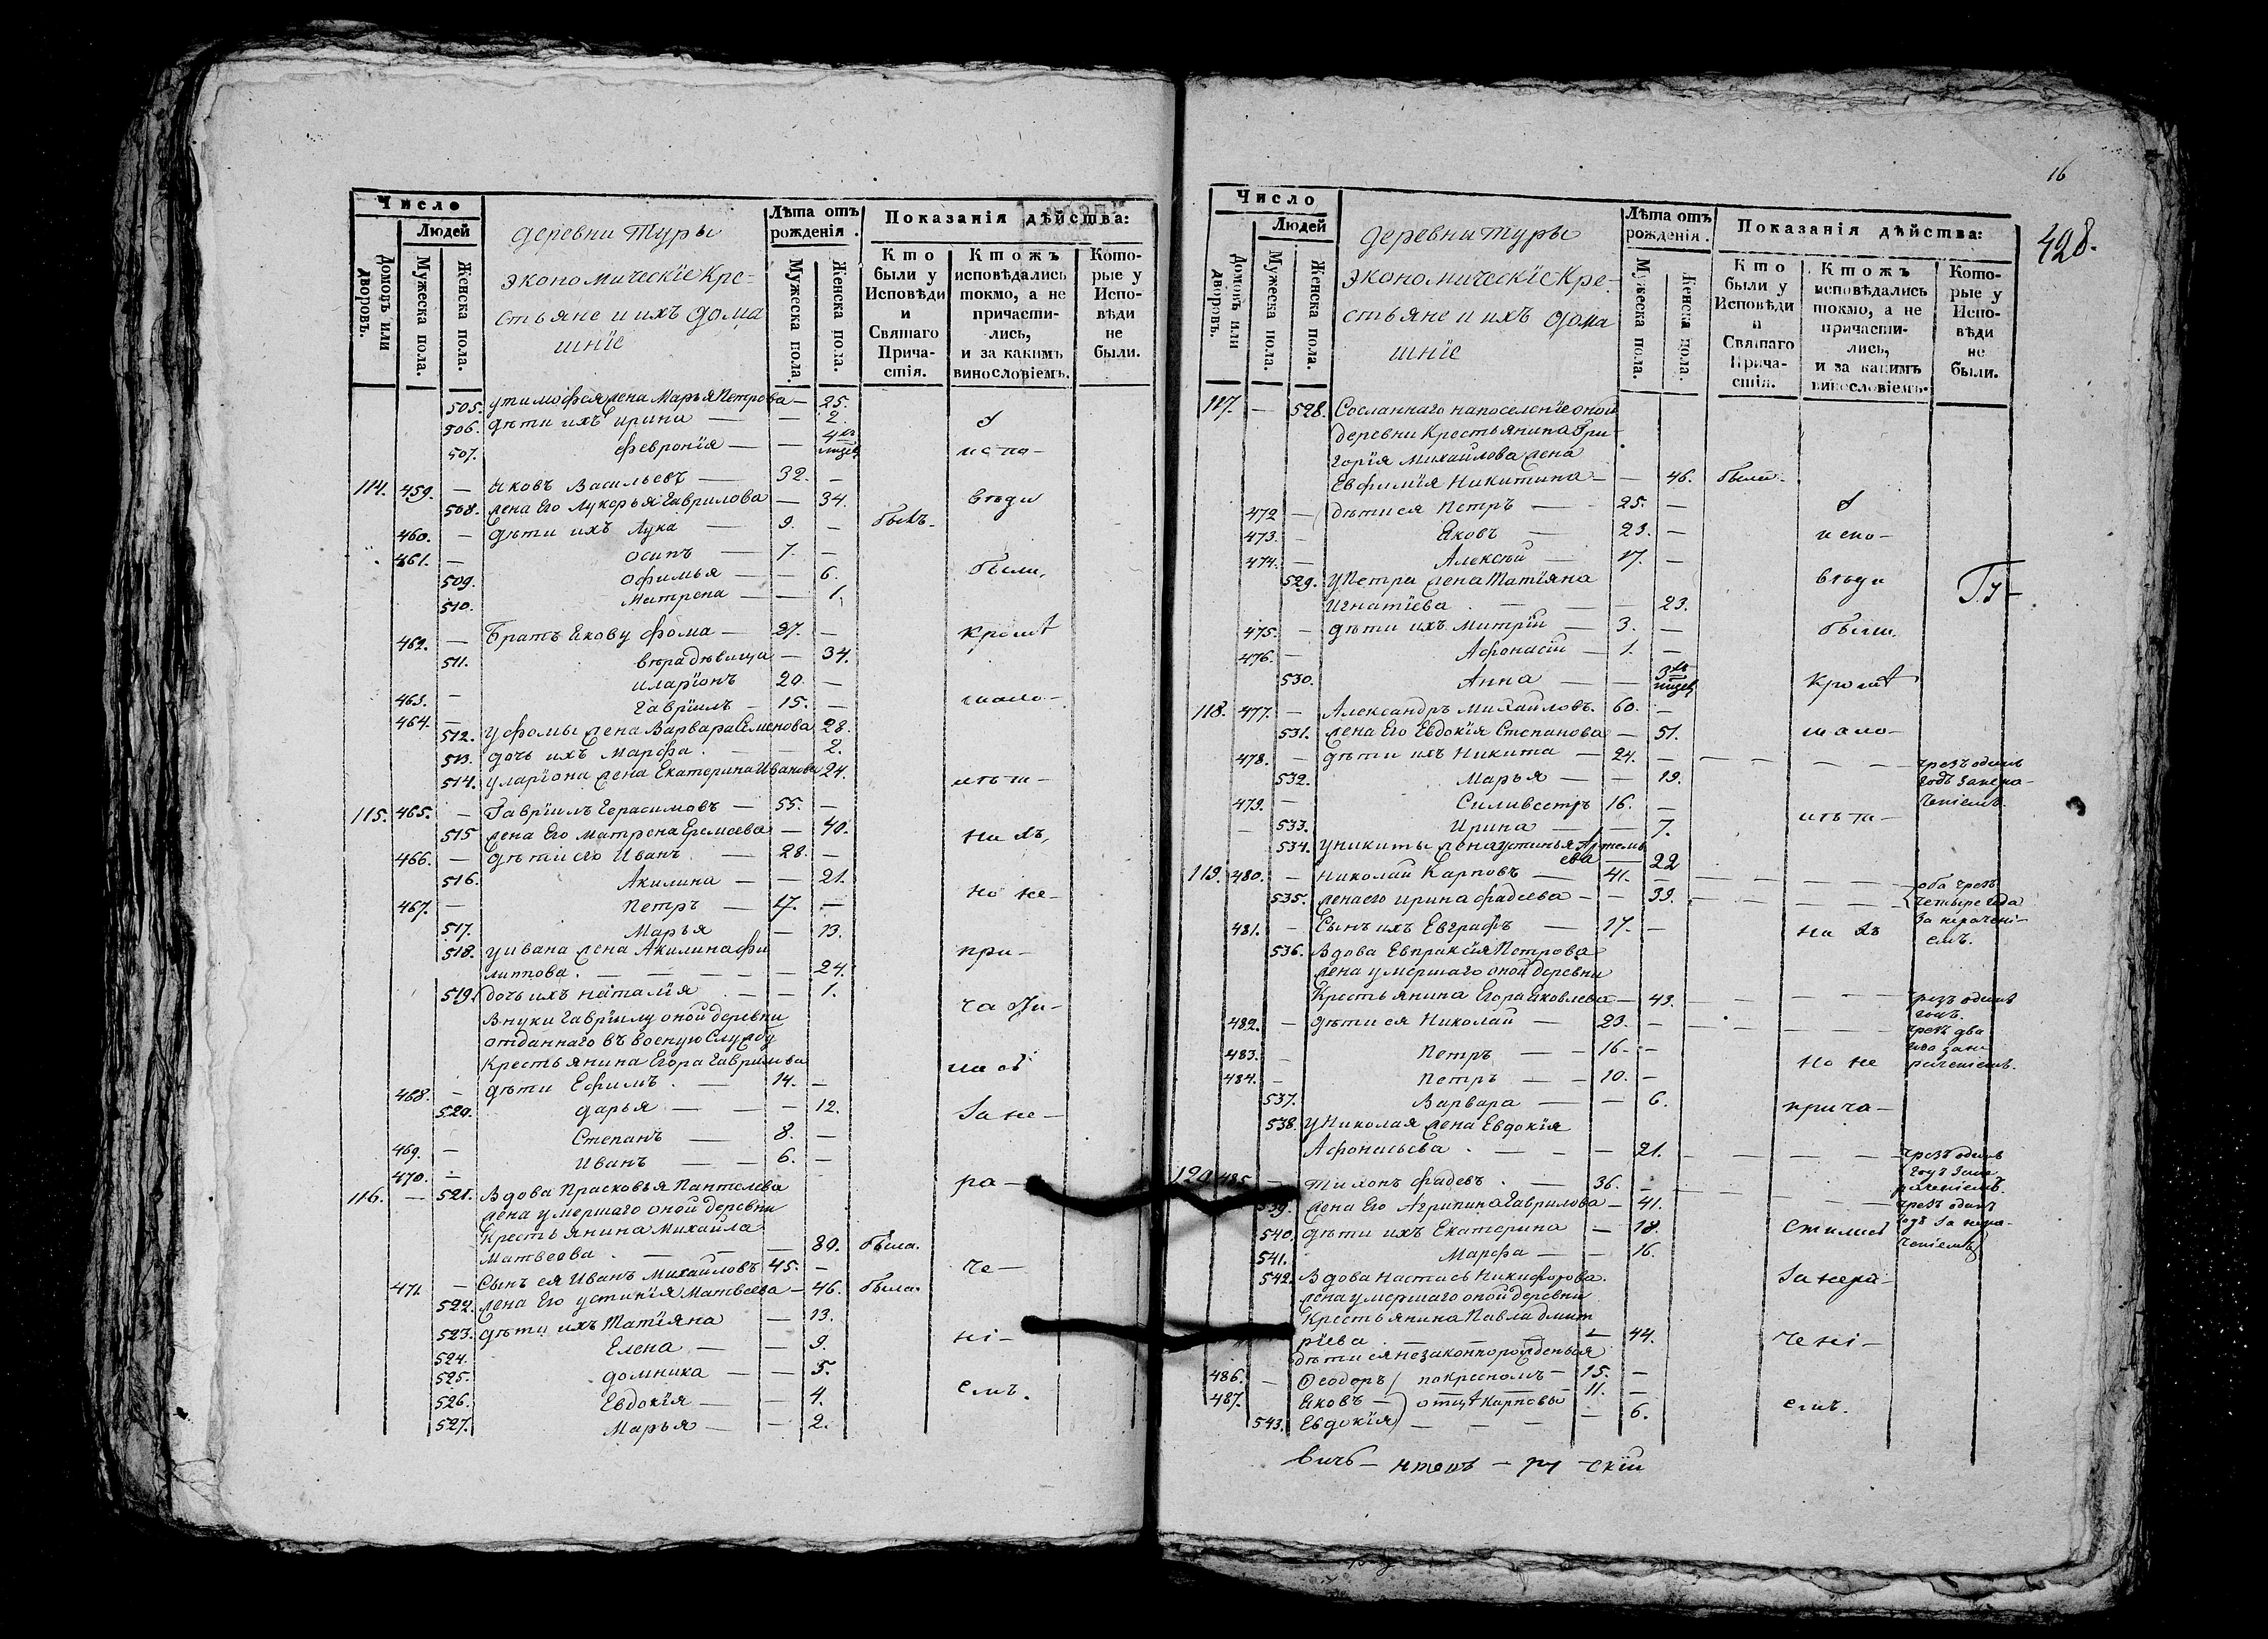 Число
Людей
Домовъ или дворовъ.
Мужеска пола.
Женска пола.
деревни Туры
экономическіе Кре-
стьяне и ихъ дома
шніе
Лѣта отъ рожденія.
Мужеска пола.
Женска пола.
Показанія дѣйства:
Кто были у Исповѣди и Святаго Прича-стія.
Ктожъ исповѣдались токмо, а не причасти-лись, и за какимъ винословіемъ.
Кото-рые у Испо-вѣди не были.
505. у тимофея жена Марья Петрова — 25.
506. дѣти ихъ ирина — — 2.
507. февронія — —
испо-
114. 459. — Яковъ Васильевъ — 32. —
508. жена Его Лукерья Гаврилова — 34.
вѣди
460. — дѣти ихъ Лука — 9. — былъ.
461. — осипъ — 7. —
509. офимья — — 6.
были,
510. Матрена — — 1.
462. — Братъ Якову фома — 27. —
кромѣ
511. вѣра дѣвица — 34.
463. — иларіонъ 20. —
464. — Гавріилъ — 15. —
мало-
512. у фомы жена Варвара Семенова 28.
513. дочь ихъ Марфа. — — 2.
514. у ларіона жена Екатерина Иванова 24.
лѣтн-
115. 465. — Гавріилъ Герасимовъ — 55. —
515 жена Его Матрена Еремеева — 40.
ныхъ,
466. — дѣти его Иванъ. — 28. —
516. Акилина — — 21.
но не-
467. — Петръ — 17. —
517. Марья — 13.
518. у ивана жена Акилина фи
липпова. — — — — — 24.
при-
519. дочь ихъ наталія — — 1.
Внуки Гавріилу оной деревни
отданнаго въ военую Службу
Крестьянина Егора Гаврилова
468. — дѣти Ефимъ. — 14. —
520. дарья — — — 12.
за не-
469. — Степанъ — 8. —
470. — Иванъ — — 6. —
116. — 521. Вдова Прасковья Пантелева
ра-
жена умершаго оной деревни
Крестьянина Михайла
Матвеева. — — — — 80. была.
471. — Сынъ ея Иванъ Михайловъ 45. —
че-
522. жена Его устинія Матвеева — 46. была.
523. дѣти ихъ Татіяна — 13.
524. Елена — — 9.
ні-
525. домника — — 5.
526. Евдокія — — 4.
емъ.
527. Марья — — 2.
16
428.
Число
Людей
Домовъ или дворовъ.
Мужеска пола.
Женска пола.
деревни туры
экономическіе Кре-
стьяне и ихъ дома
шніе
Лѣта отъ рожденія.
Мужеска пола.
Женска пола.
Показанія дѣйства:
Кто были у Исповѣди и Святаго Прича-стія.
Ктожъ исповѣдались токмо, а не причасти-лись, и за какимъ винословіемъ.
Кото-рые у Испо-вѣди не были.
117. — 528. Сосланнаго на поселеніе оной
деревни Крестьянина Гри-
горія Михайлова жена
Евфимія Никитина — — 46. была.
472 — дѣти ея Петръ — 25. —
473. — Яковъ — 23. —
испо-
474. — Алексѣй — 17. —
529. у Петра жена Татіяна
вѣди
Игнатіева. — — — 23.
475. — дѣти ихъ Митрій — 3. —
были.
476. — Афонасій — 1. —
530. Анна — —
кромѣ
118. 477. — Александръ Михайловъ. 60. —
531. жена Его Евдокія Степанова — 51.
мало-
478. — дѣти ихъ Никита — 24. — чрезъ одинъ
532. Марья — — 19.
годъ за нера-
ченіемъ.
479. — Силивестръ 16. —
лѣтн-
533. Ирина — — 7.
534. у никиты жена устинья Артемь
ева — 22
119. 480. — Николай Карповъ — 41. — оба чрезъ
535. жена его ирина фадеева — — 39. четыре года
за нерачені-
емъ.
481. — Сынъ ихъ Евграфъ — 17. —
ныхъ
536. Вдова Евпраксія Петрова
жена умершаго оной деревни
Крестьянина Егора Яковлева — 43. чрезъ одинъ
годъ.
482. — дѣти ея Николай — 23. — чрезъ два
483. — Петръ — — 16. —
но не
484. — Петръ — — 10. —
537. Варвара — — 6.
прича-
538. у Николая жена Евдокія
Афонасьева. — — — 21. чрезъ одинъ
120. 485. — тихонъ фадевъ. — 36. —
539. жена Его Агрипина Гаврилова — 41. чрезъ одинъ
540. дѣти ихъ Екатерина — 18.
стились
годъ за нера-
ченіемъ
541. Марфа — — 16.
542. Вдова Настась Никифорова.
за нера-
жена умершаго оной деревни
Крестьянина Павла дмит
ріева. — — — — 44.
чені-
дѣти ея незаконнорожденныя
486. — Ѳеодоръ покресномъ — 15. —
487. Яковъ — отцѣ Карповы 11. —
емъ.
543. Евдокія — — — — 6.
вичь — — скій